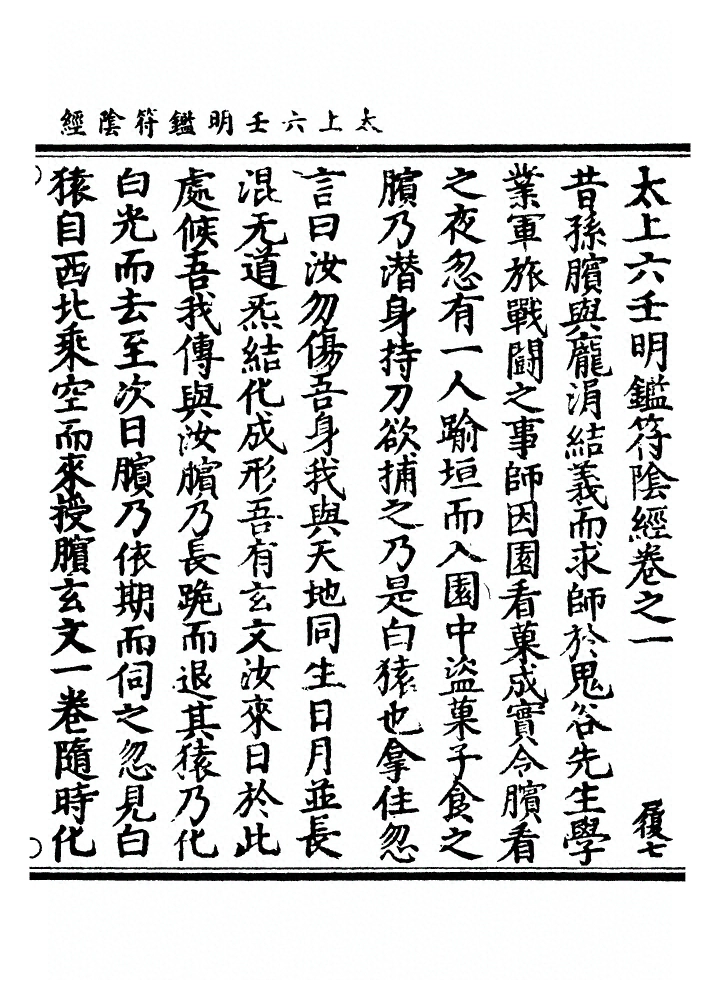 太上六壬明鑑符陰經
太上六壬明鑑符陰經卷之一
履七
昔孫臏與龐涓結義而求師於鬼谷先生學
業軍旅戰鬪之事師因園看菓成實令臏看
之夜忽有一人踰垣而入園中盜菓子食之
臏乃潛身持刀欲捕之乃是白猿也拿住忽
言曰汝勿傷吾身我與天地同生日月並長
混无道炁結化成形吾有玄文汝來日於此
處候吾我傳與汝臏乃長跪而退其猿乃化
白光而去至次日臏乃依期而伺之忽見白
猿自西北乘空而來授臏玄文一卷隨時化